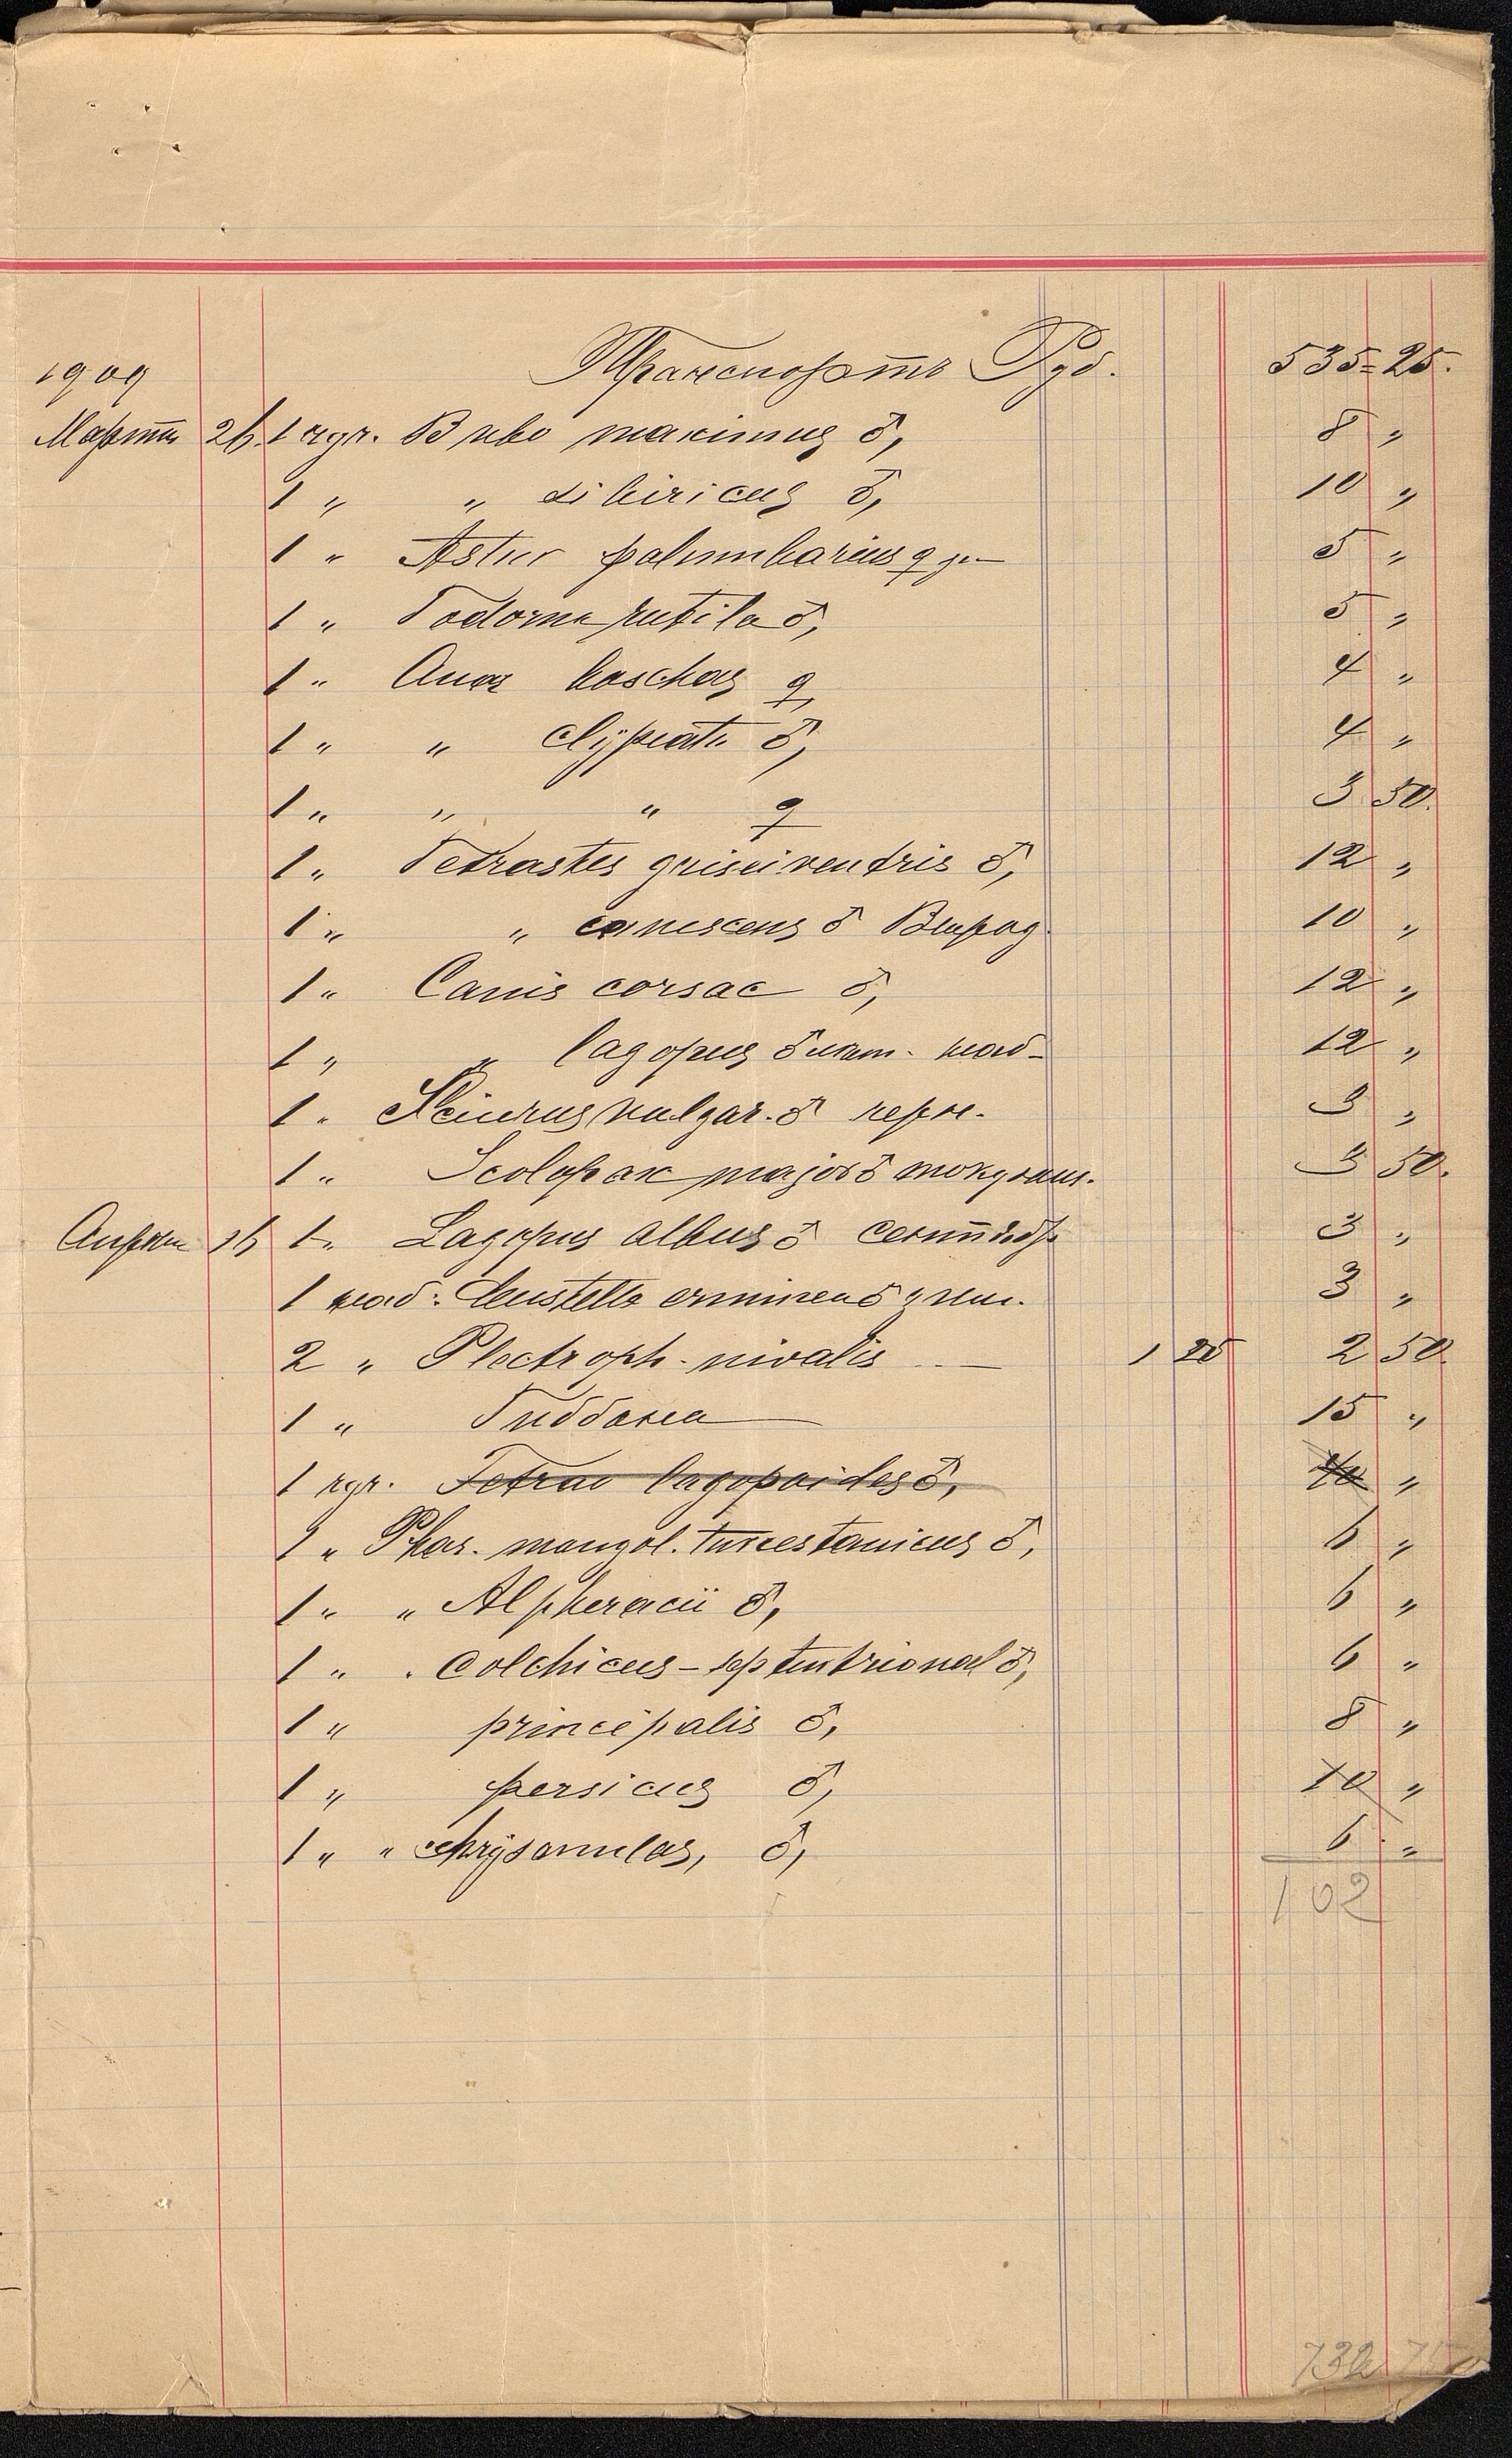 Транспортъ Руб. 535=25.
1909
Марта 26. 1 чуч. Bubo maximus ♂, 8 "
1 " " sibiricus ♂, 10 "
1 " Astur palumbarius ♀ 5 "
1 " Tadorna rutila ♂, 5 "
1 " Anas boschas ♀, 4 "
1 " " clypeata ♂, 4 "
1 " " " ♀ 3 50.
1 " Tetrastes griseiventris ♂, 12 "
1 " " canescens ♂ 10 "
1 " Canis corsac ♂, 12 "
1 " " lagopus ♂ 12 "
1 " Sciurus vulgar. ♂ 3 "
1 " Scolopax major ♂ 3 50.
Апрѣля 16 1 " Lagopus albus ♂ сентябр 3 "
1 наб. Mustella erminea ♂ зим. 3 "
2 " Plectroph. nivalis — 1 25 2 50.
1 " Гиббона — 15 "
1 чуч. Tetrao lagopoides ♂, 40 "
1 " Phas. mongol. turcestanicus ♂, 6 "
1 " " Alpheracii ♂, 6 "
1 " " colchicus-septentrional ♂, 6 "
1 " principalis ♂, 8 "
1 " persicus ♂, 10 "
1 " " chrysomelas, ♂, 6 "
102
732 75